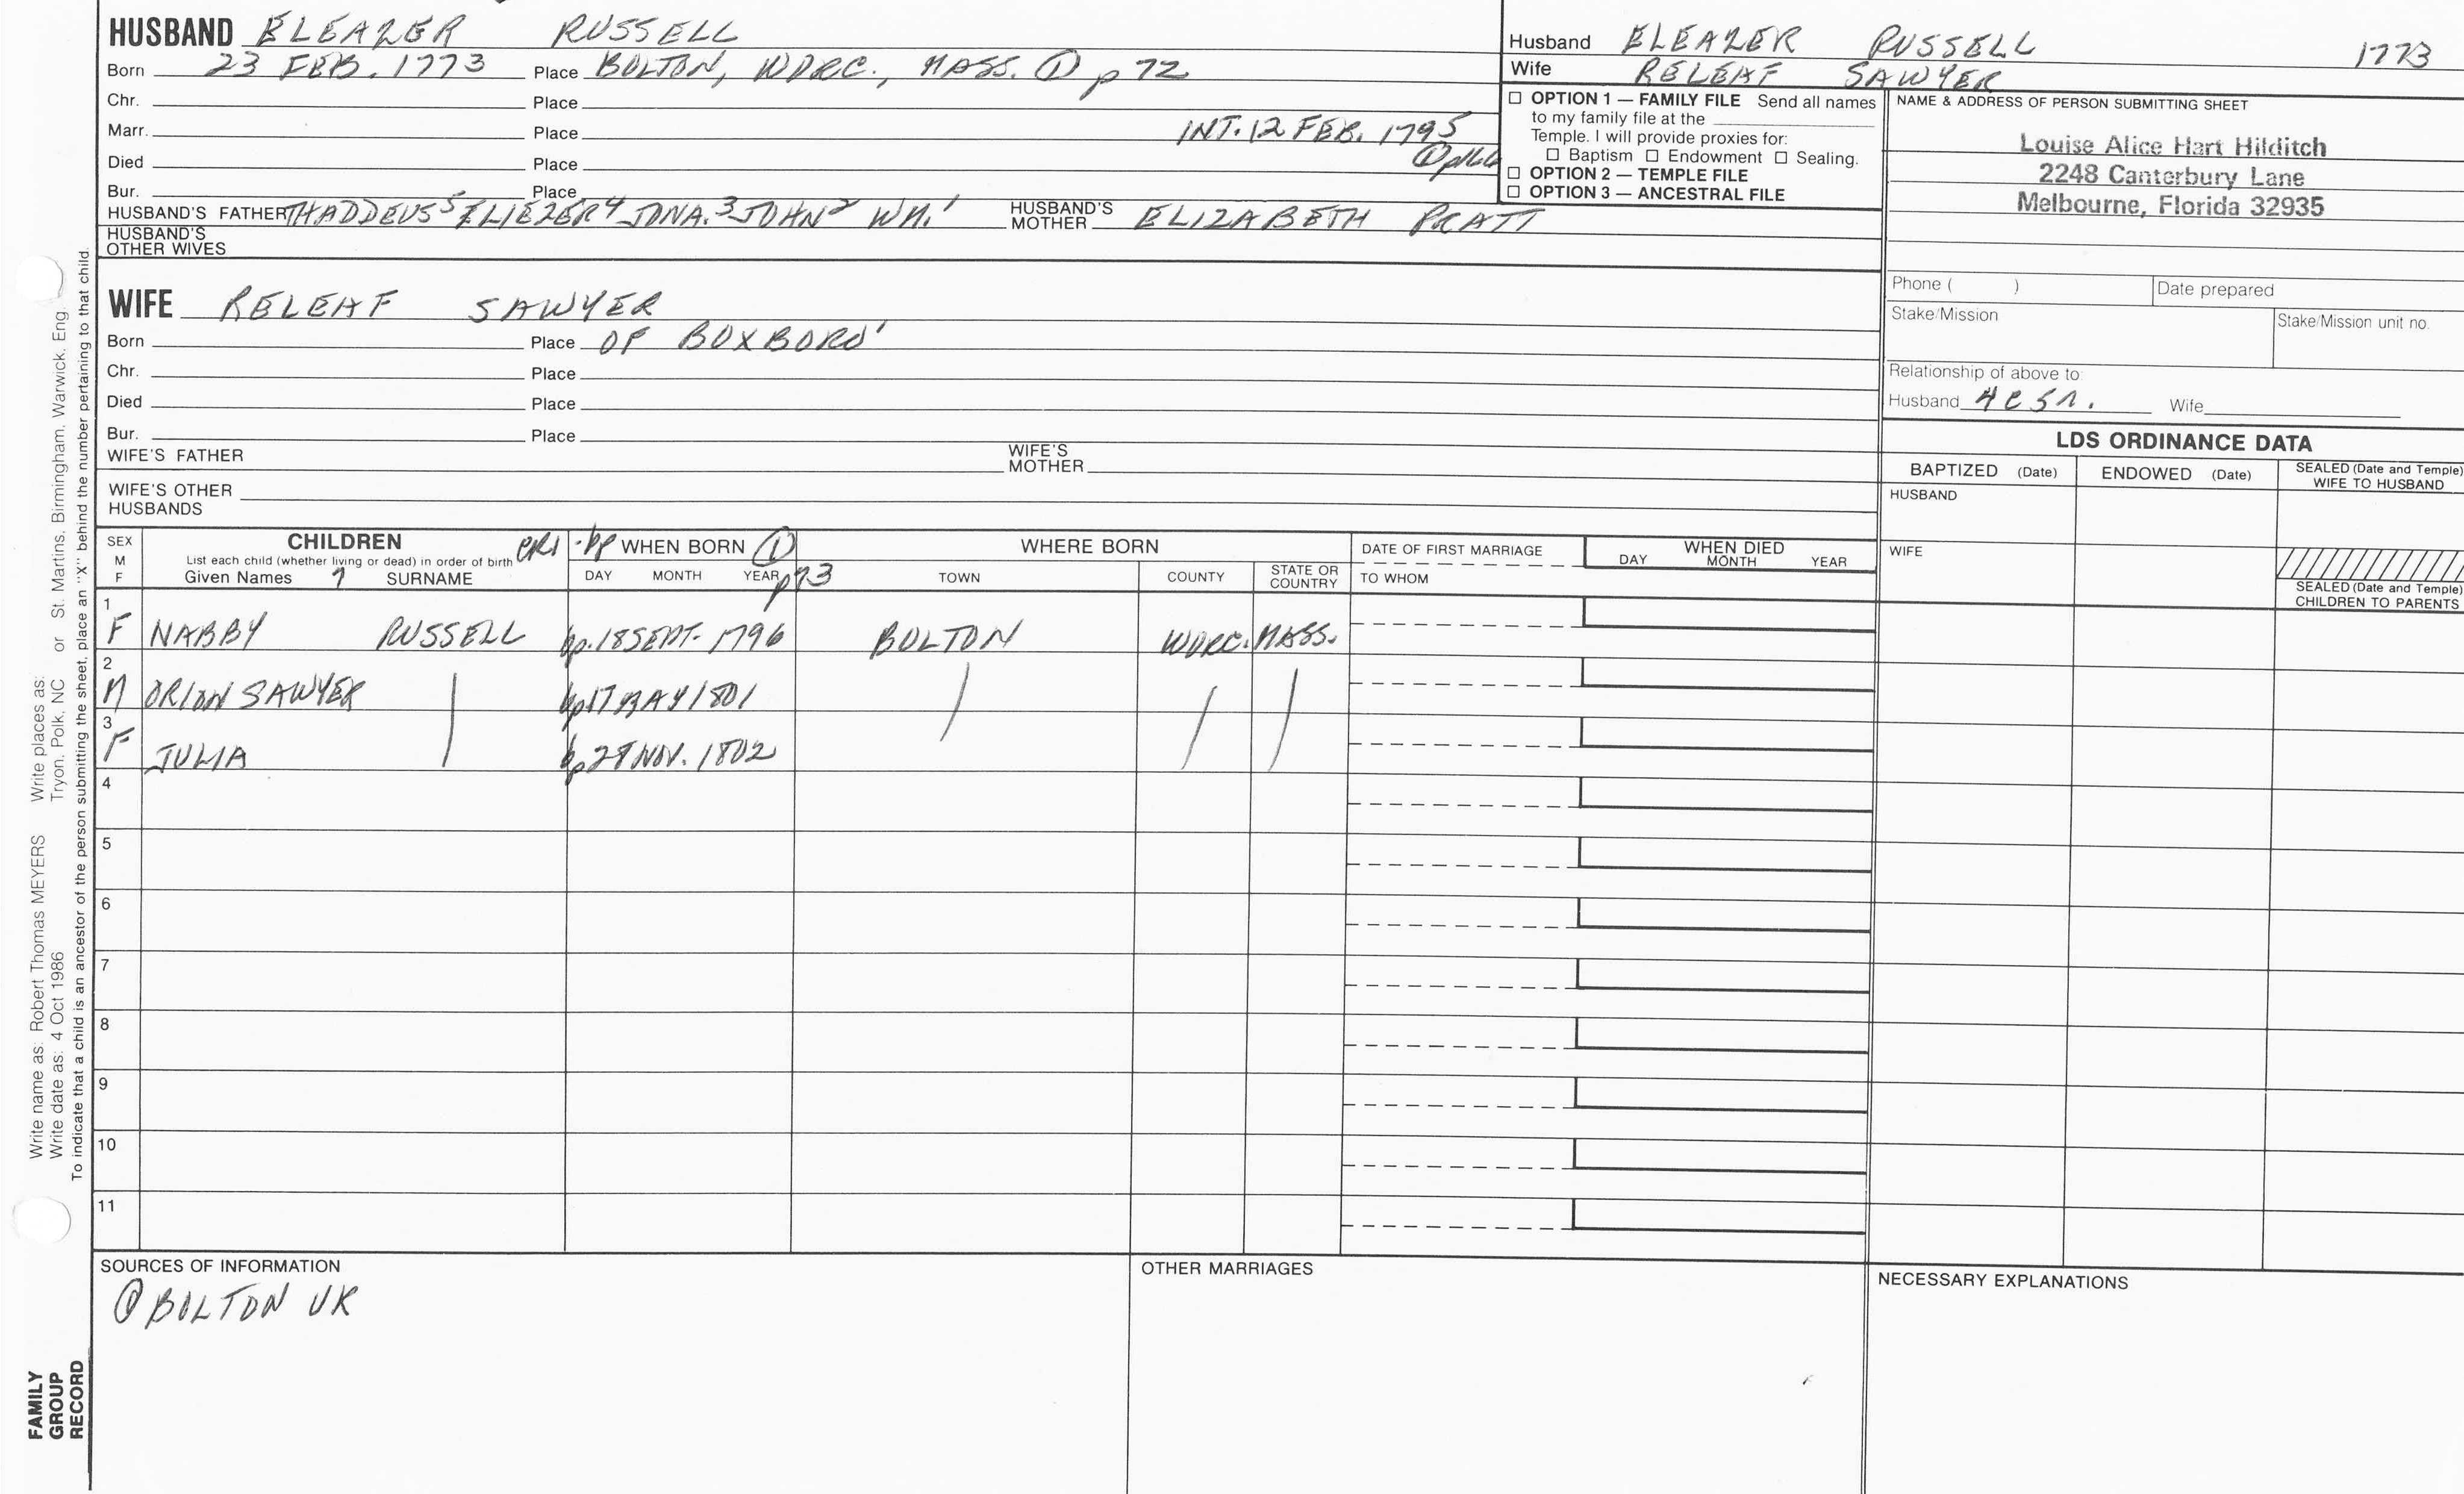 HUSBAND ELEAZER RUSSELL
Born 23 FEB. 1773 Place BOLTON, WORC., MASS. ① p 72
Chr. Place
Marr. Place INT. 12 FEB. 1795
Died Place ①
Bur. Place
HUSBAND'S FATHER THADDEUS⁵ ELIEZER⁴ JONA.³ JOHN² WM.¹ HUSBAND'S MOTHER ELIZABETH PRATT
HUSBAND'S OTHER WIVES
Husband ELEAZER RUSSELL 1773
Wife RELEAF SAWYER
☐ OPTION 1 — FAMILY FILE Send all names
to my family file at the
Temple. I will provide proxies for:
☐ Baptism ☐ Endowment ☐ Sealing.
☐ OPTION 2 — TEMPLE FILE
☐ OPTION 3 — ANCESTRAL FILE
NAME & ADDRESS OF PERSON SUBMITTING SHEET
Louise Alice Hart Hilditch
2248 Canterbury Lane
Melbourne, Florida 32935
Phone ( ) Date prepared
Stake/Mission Stake/Mission unit no.
Relationship of above to
Husband 4C5R. Wife
WIFE RELEAF SAWYER
Born Place OF BOXBORO'
Chr. Place
Died Place
Bur. Place
WIFE'S FATHER WIFE'S MOTHER
WIFE'S OTHER HUSBANDS
LDS ORDINANCE DATA
BAPTIZED (Date) ENDOWED (Date) SEALED (Date and Temple) WIFE TO HUSBAND
HUSBAND
WIFE
SEALED (Date and Temple) CHILDREN TO PARENTS
SEX M F
CHILDREN CR1 - bp
List each child (whether living or dead) in order of birth
Given Names ? SURNAME
WHEN BORN ① p73
DAY MONTH YEAR
WHERE BORN
TOWN COUNTY STATE OR COUNTRY
DATE OF FIRST MARRIAGE
TO WHOM
WHEN DIED
DAY MONTH YEAR
1 F NABBY RUSSELL bp. 18 SEPT. 1796 BOLTON WORC. MASS.
2 M ORION SAWYER bp 17 MAY 1801
3 F JULIA bp 28 NOV. 1802
4
5
6
7
8
9
10
11
SOURCES OF INFORMATION
① BOLTON VR
OTHER MARRIAGES
NECESSARY EXPLANATIONS
Write name as: Robert Thomas MEYERS Write places as:
Write date as: 4 Oct 1986 Tryon, Polk, NC or St. Martins, Birmingham, Warwick, Eng.
To indicate that a child is an ancestor of the person submitting the sheet, place an "X" behind the number pertaining to that child.
FAMILY
GROUP
RECORD